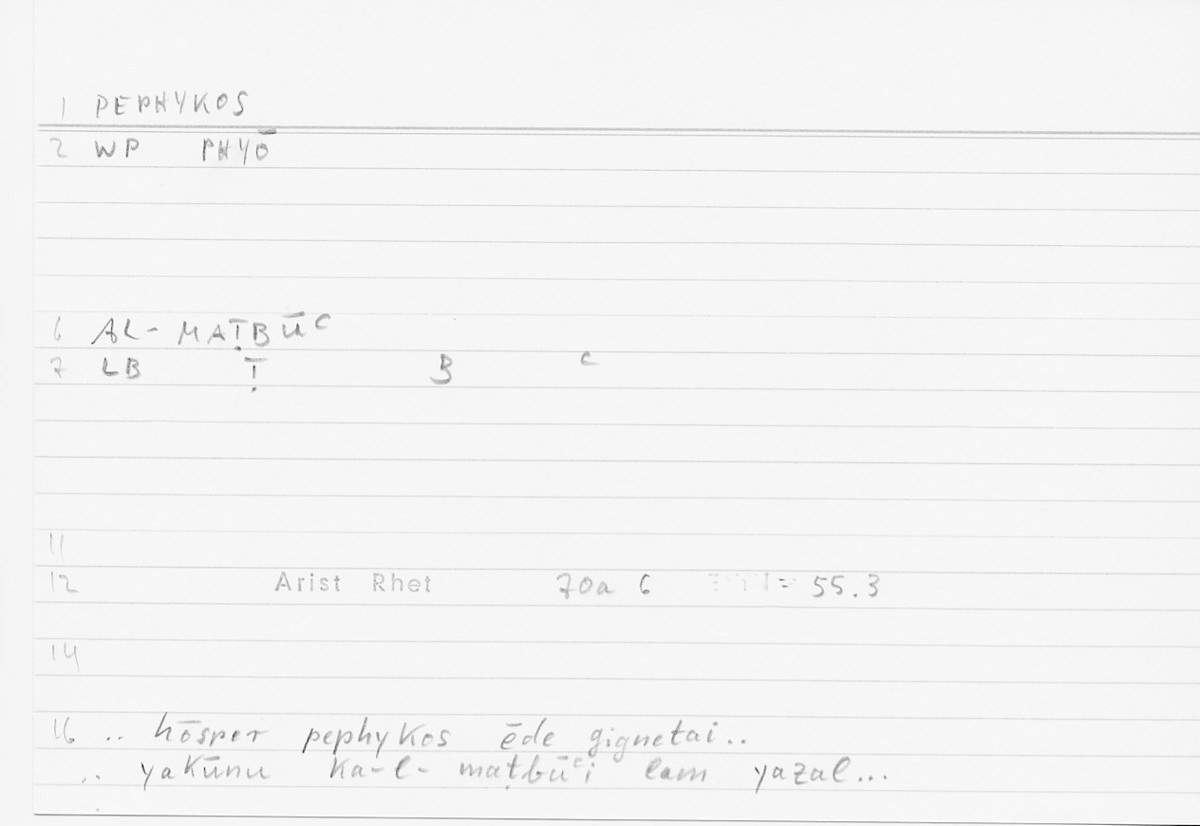 1 PEPHYKOS
2 WP PHYŌ
6 AL-MAṬBŪC
7 LB Ṭ B C
11
12 Arist Rhet 70a 6 = 55.3
14
16 .. hōsper pephykos ēde gignetai..
.. yakūnu ka-l-maṭbūʿi lam yazal...